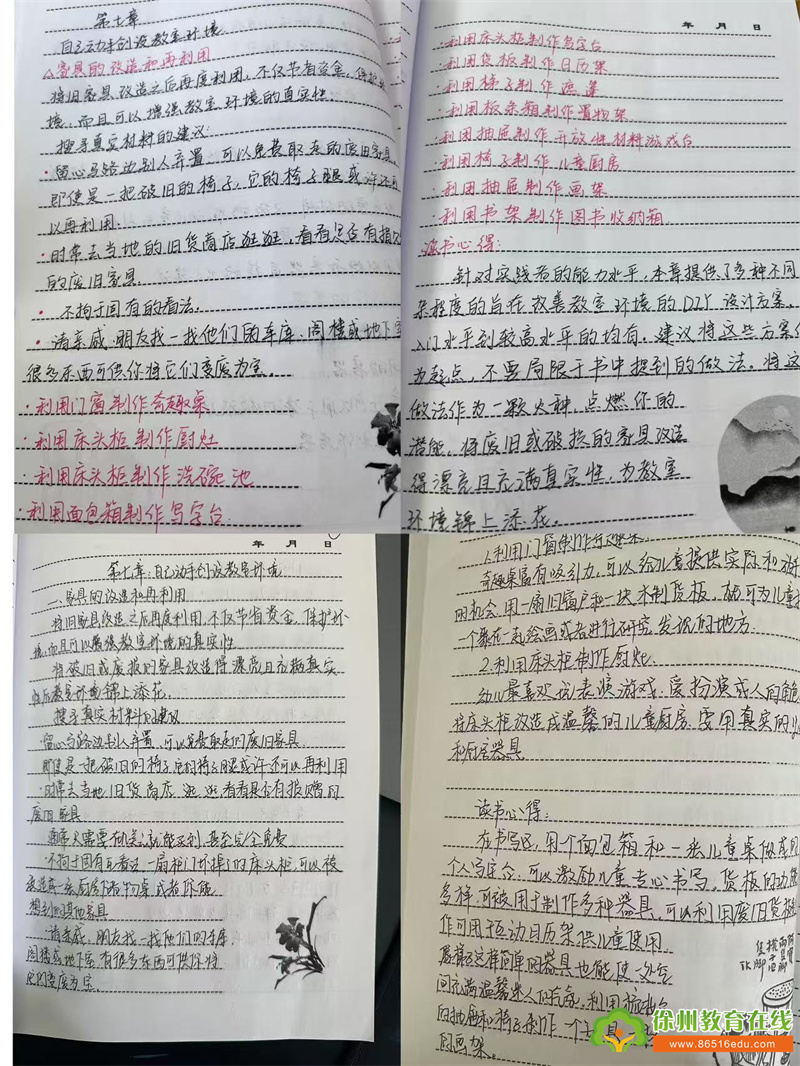 第七章
自己动手创设教室环境
家具的改造和再利用
将旧家具改造之后再度利用,不仅节省资金,保护
境,而且可以增强教室环境的真实性.
搜寻真实材料的建议:
·留心马路边别人弃置,可以免费取走的废旧家具.
即使是一把破旧的椅子,它的椅子腿或许还可
以再利用.
·时常去当地的旧货商店逛逛,看看是否有捐
的废旧家具.
·不拘于固有的看法.
·请亲戚.朋友找一找他们的车库、阁楼或地下室
很多东西可供你将它们变废为宝。
·利用门窗制作奇趣桌
·利用床头柜制作厨灶
·利用床头柜制作洗碗池
·利用面包箱制作写字台.
年 月 日
·利用床头柜制作写字台
·利用货板制作日历架
·利用梯子制作遮篷
·利用板条箱制作置物架
·利用抽屉制作开放性材料游戏台
·利用椅子制作儿童厨房
·利用抽屉制作画架
·利用书架制作图书收纳箱
读书心得:
针对实践者的能力水平,本章提供了多种不同
杂程度的旨在改善教室环境的DIY设计方案.
入门水平到较高水平的均有.建议将这些方案
为起点,不要局限于书中提到的做法。将这
做法作为一颗火种,点燃你的
潜能,将废旧或破损的家具改造
得漂亮且充满真实性,为教室
环境锦上添花。
年 月 日
第七章:自己动手创设教室环境
一.家具的改造和再利用
将旧家具改造之后再度利用,不仅节省资金,保护环
境,而且可以增强教室环境的真实性
将破旧或废损的家具改造得漂亮且充满真实
性后教室环境锦上添花.
搜寻真实材料的建议
留心马路边别人弃置,可以免费取走的废旧家具
即使是一把破旧的椅子,它的椅子腿或许还可以再利用
·时常去当地旧货商店逛逛,看看是否有捐赠的
废旧家具
不拘于固有的看法.一扇柜门坏掉了的床头柜,可以被
想到的其他家具
请亲戚,朋友找一找他们的车库,
阁楼或地下室有很多东西可供你将
它们变废为宝.
1.利用门窗制作奇趣桌
奇趣桌富有吸引力,可以给儿童提供实际和
的机会.用一扇旧窗户和一块木制货板,就可为儿童
一个聚在一起绘画或者进行研究,发现的地方.
2.利用床头柜制作厨灶.
幼儿最喜欢玩表演游戏.爱扮演成人的角色
将床头柜改造成温馨的儿童厨房.要用真实的
和厨房器具
读书心得:
在书写区,用个面包箱和一张儿童桌做成
个人写字台.可以激励儿童专心书写.货板的功能
多样,可被用于制作多种器具.可以利用废旧货板
作可用于互动日历架供儿童使用
间充满温馨迷人的气氛.利用
的画架.
徐州教育在线
www.86516edu.com